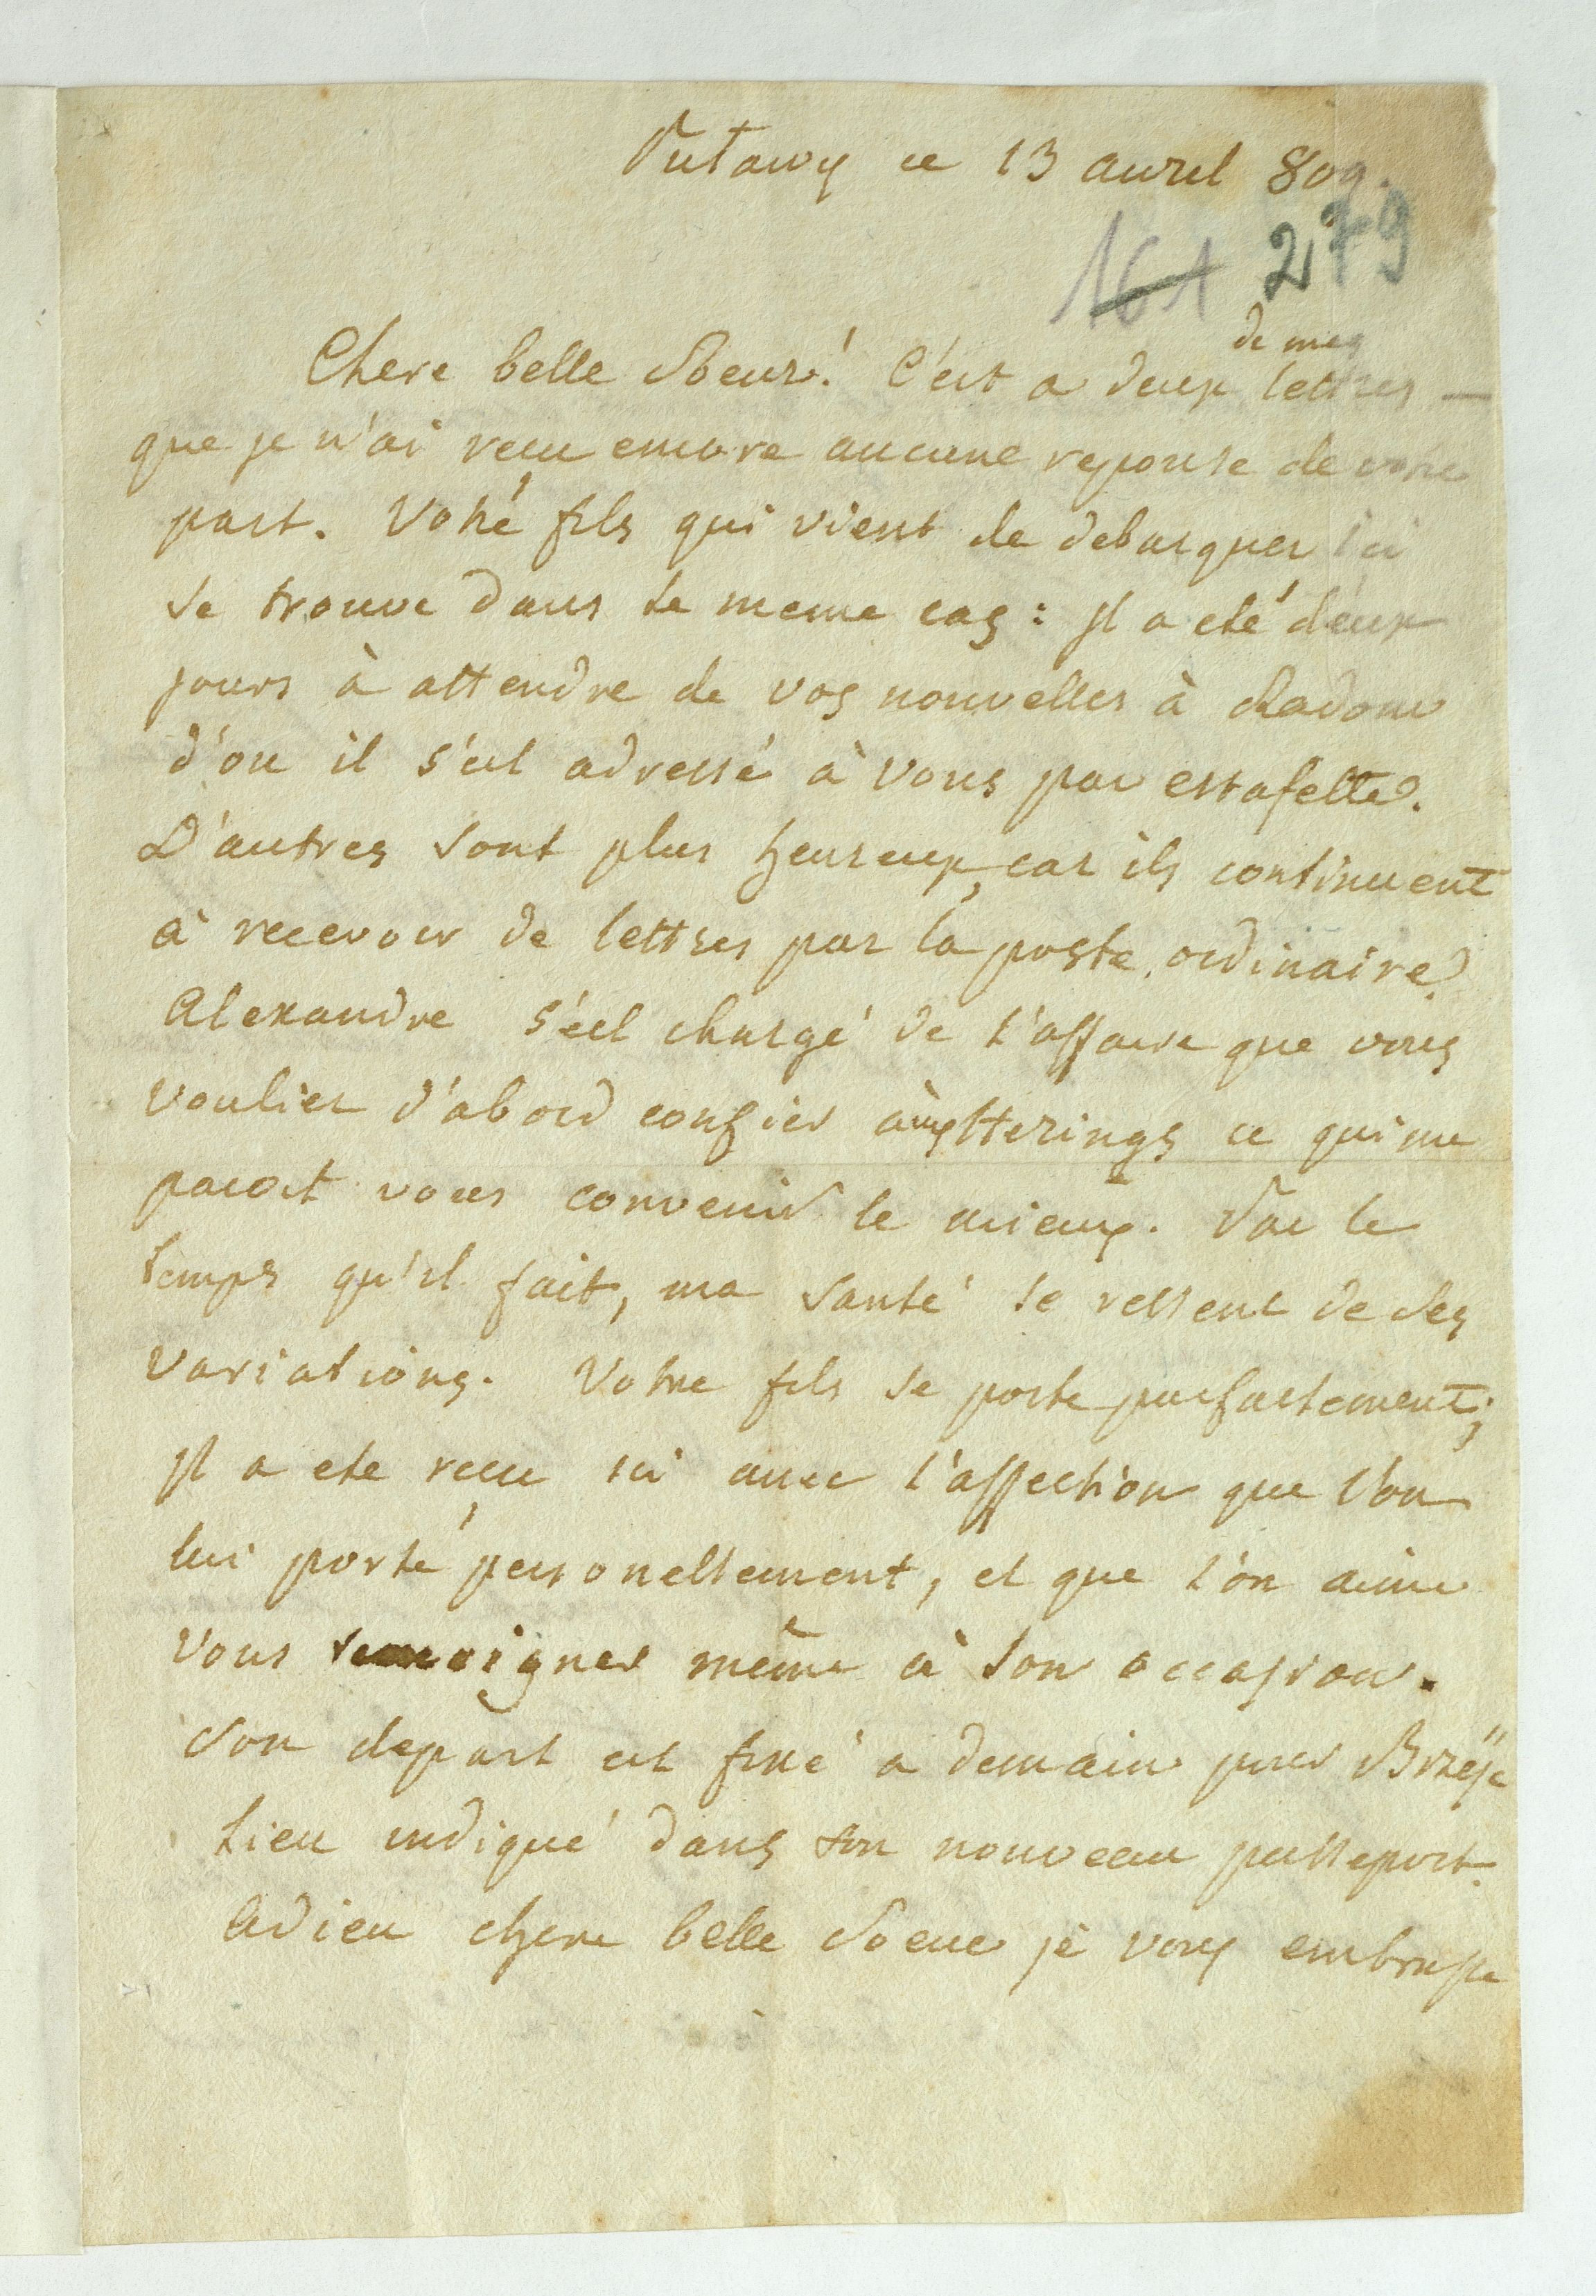 Puławy ce 13 avril 809.
161 279
de mes
Chere belle Soeur! C'est a deux lettres —
que je n'ai reçu encore aucune reponse de votre
part. Votre fils qui vient de debarquer ici
se trouve dans le meme cas: Il a été deux
jours à attendre de vos nouvelles à Radom
d'ou il s'est adressé à vous par estafette.
D'autres sont plus heureux, car ils continuent
à recevoir de lettres par la poste ordinaire.
Alexandre s'est chargé de l'affaire que vous
vouliez d'abord confier ce qui me
paroit vous convenir le mieux. Par le
temps qu'il fait, ma santé se ressent de ses
variations. Votre fils se porte parfaitement;
Il a ete reçu ici avec l'affection que l'on
lui porte personellement, et que l'on aime
vous temoigner même à son occasion.
Son depart est fixé a demain pour
Lieu indiqué dans son nouveau passeport.
Adieu chere belle Soeur je vous embrasse